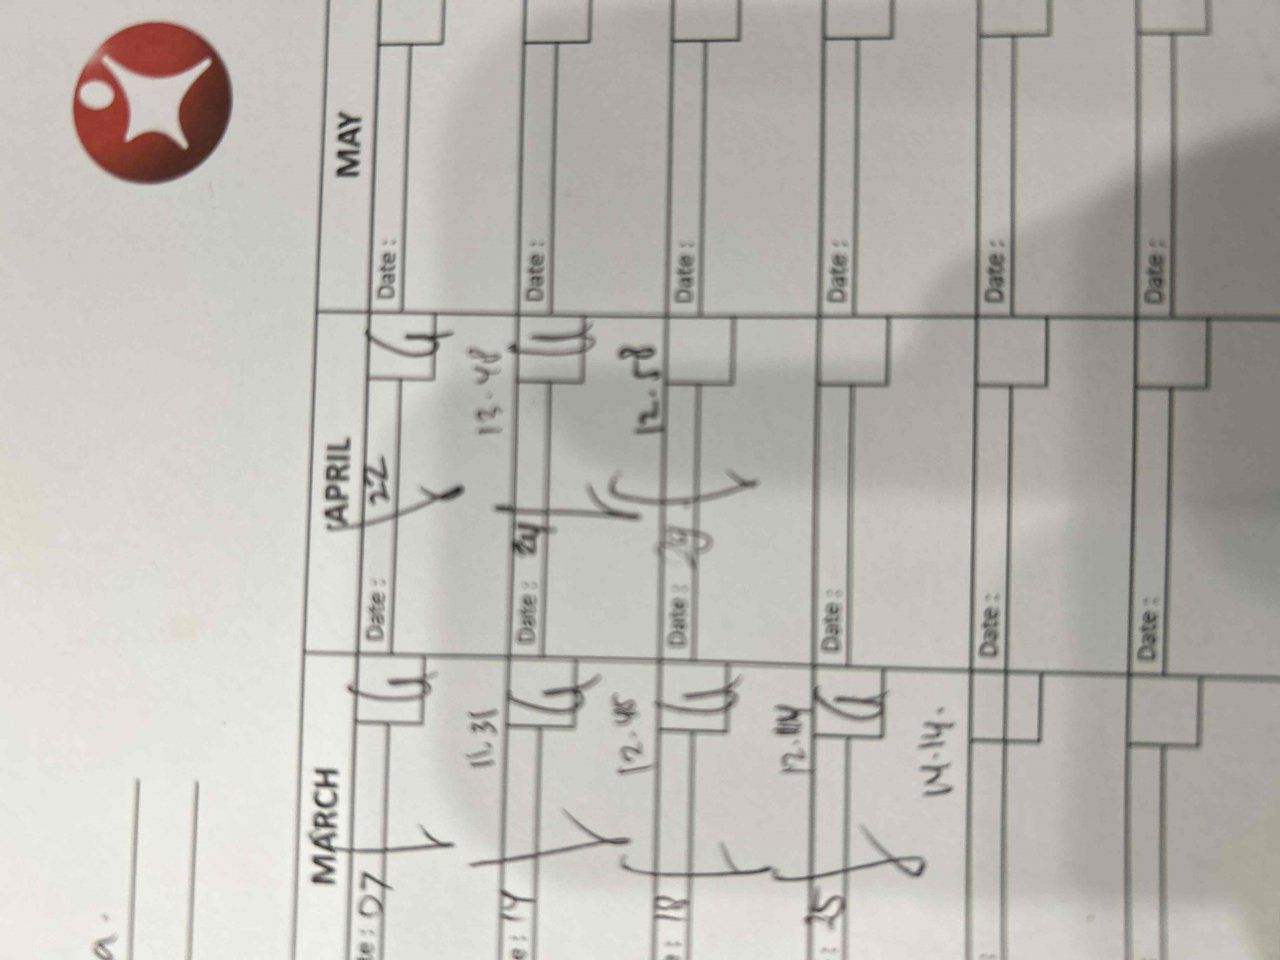 a.
MARCH APRIL MAY
te: 07 Date: 22 Date:
11.31 13.48
e: 14 Date: 24 Date:
12.45 12.58
e: 18 Date: Date:
12.44
: 25 Date: Date:
14.14.
: Date: Date:
: Date: Date: